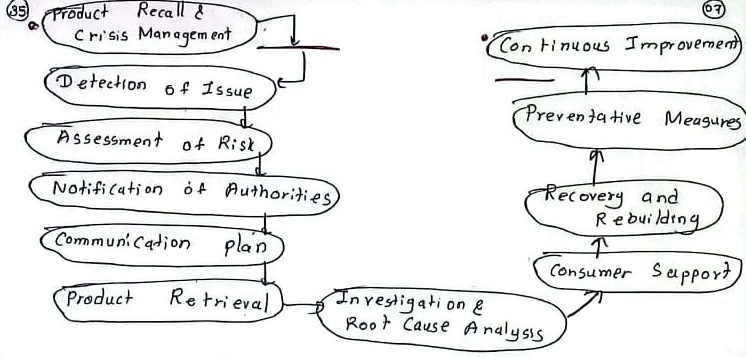 35
Product Recall &
Crisis Management
Detection of Issue
Assessment of Risk
Notification of Authorities
Communication plan
Product Retrieval
Investigation &
Root Cause Analysis
Consumer Support
Recovery and
Rebuilding
Preventative Measures
Continuous Improvement
07